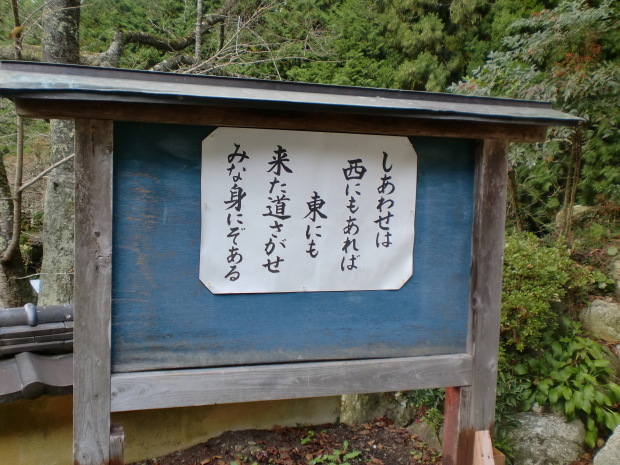 しあわせは
西にもあれば
東にも
来た道さがせ
みな身にぞある